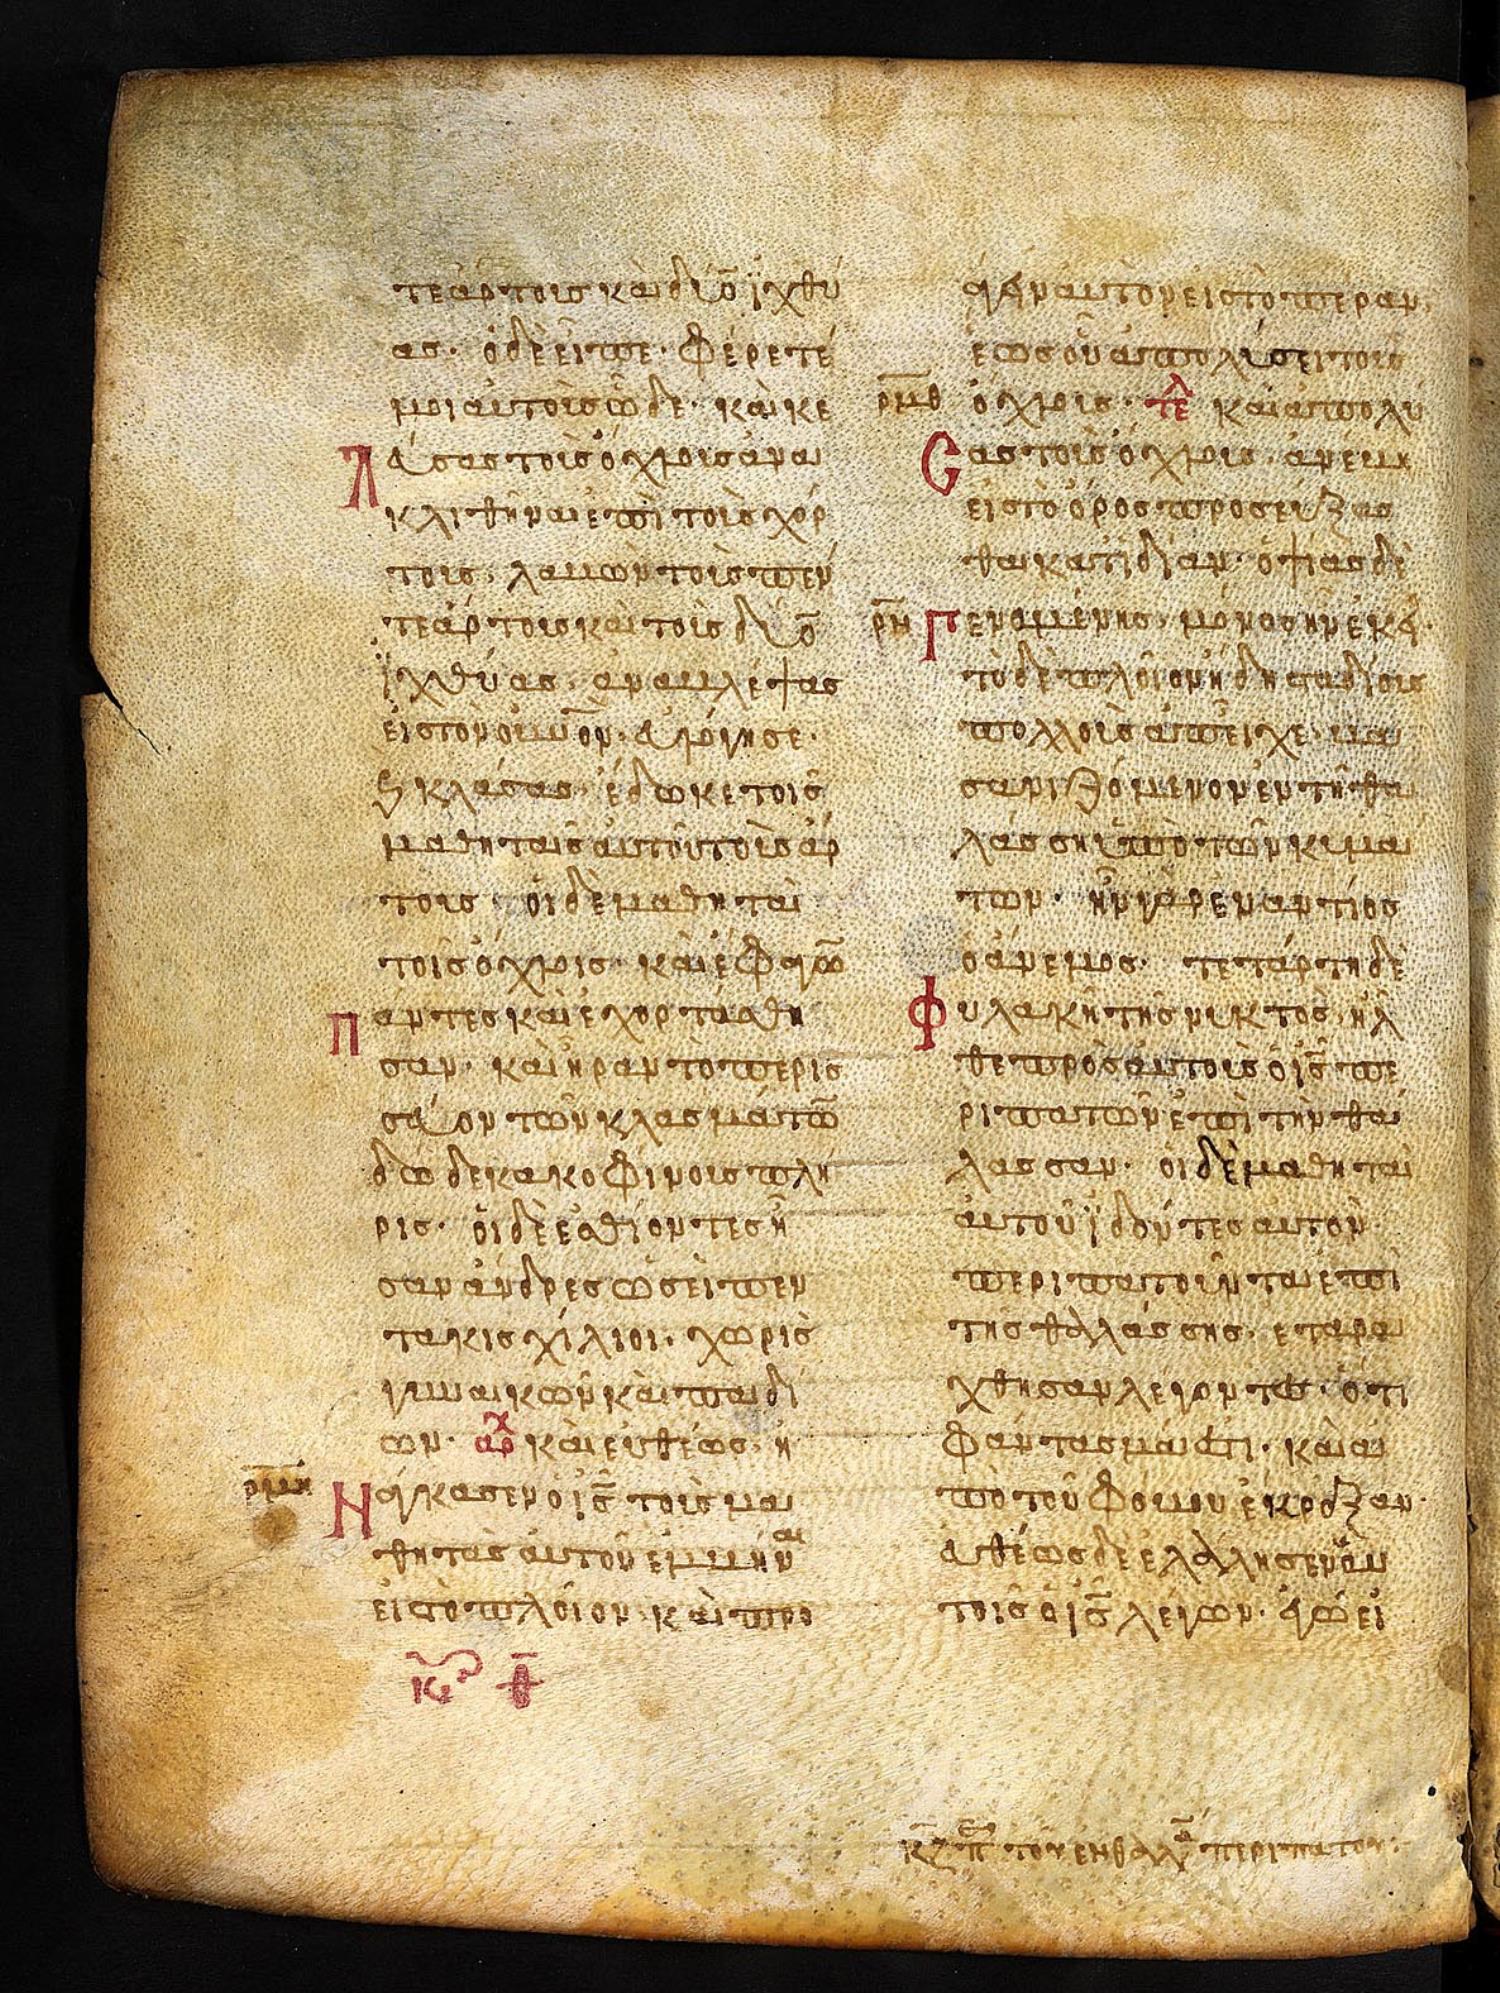 τε ἄρτους καὶ δύο ἰχθύ
ας· ὁ δὲ εἶπε· φέρετέ
μοι αὐτοὺς ὧδε· καὶ κε
Λεύσας τοὺς ὄχλους ἀνα
κλιθῆναι ἐπὶ τοὺς χόρ
τους, λαβὼν τοὺς πέν
τε ἄρτους καὶ τοὺς δύο
ἰχθύας, ἀναβλέψας
εἰς τὸν οὐνον· εὐλόγησε·
κλάσας· ἔδωκε τοῖς
μαθηταῖς αὐτοῦ τοὺς ἄρ
τους· οἱ δὲ μαθηταὶ
τοῖς ὄχλοις· καὶ ἔφαγω
Παντες καὶ ἐχορτάσθη
σαν· καὶ ἦραν τὸ περισ
σεῦον τῶν κλασμάτω
δώδεκα κοφίνους πλή
ρις· οἱ δὲ ἐσθίοντες ἦ
σαν ἄνδρες ὡσεὶ πεν
τακισχίλιοι· χωρὶς
γυναικῶν καὶ παιδί
ων· αρχ καὶ εὐθέως· ἠ
ρμη Ναγκασεν ὁ ις τοὺς μα
θητὰς αὐτοῦ ἐμβῆναι
εἰς τὸ πλοῖον· καὶ προ
άγειν αὐτὸν εἰς τὸ πέραν,
ἕως οὗ ἀπολύσει τοὺς
ρμθ ὄχλους· τελ καὶ ἀπολύ
Σας τοὺς ὄχλους, ἀνέβη
εἰς τὸ ὄρος προσεύξασ
θαι κατιδίαν· ὀψίας δὲ
ρν Γενομένης, μόνος ἦν ἐκεῖ·
τὸ δὲ πλοῖον ἤδη σταδίους
πολλοὺς ἀπεῖχε· βα
σανιζόμενον ἐν τῇ θα
λάσσῃ ὑπὸ τῶν κυμά
των· ἦν γὰρ ἐναντίος
ὁ ἄνεμος· τετάρτῃ δὲ
Φυλακῇ τῆς νυκτὸς, ἦλ
θε πρὸς αὐτοὺς ὁ ις πε
ριπατῶν ἐπὶ τὴν θά
λασσαν· οἱ δὲ μαθηταὶ
αὐτοῦ ἰδόντες αὐτὸν
περιπατοῦνται ἐπὶ
τῆς θαλάσσης, ἐταρά
χθησαν λέγοντες· ὅτι
φάντασμα ἐστι· καὶ ἀ
πὸ τοῦ φόβου ἔκραξαν·
εὐθέως δὲ ἐλάλησεν αὐ
τοῖς ὁ ις λέγων· ἐγώ εἰ
κζ π τοῦ ἐν θαλ περιπάτου·